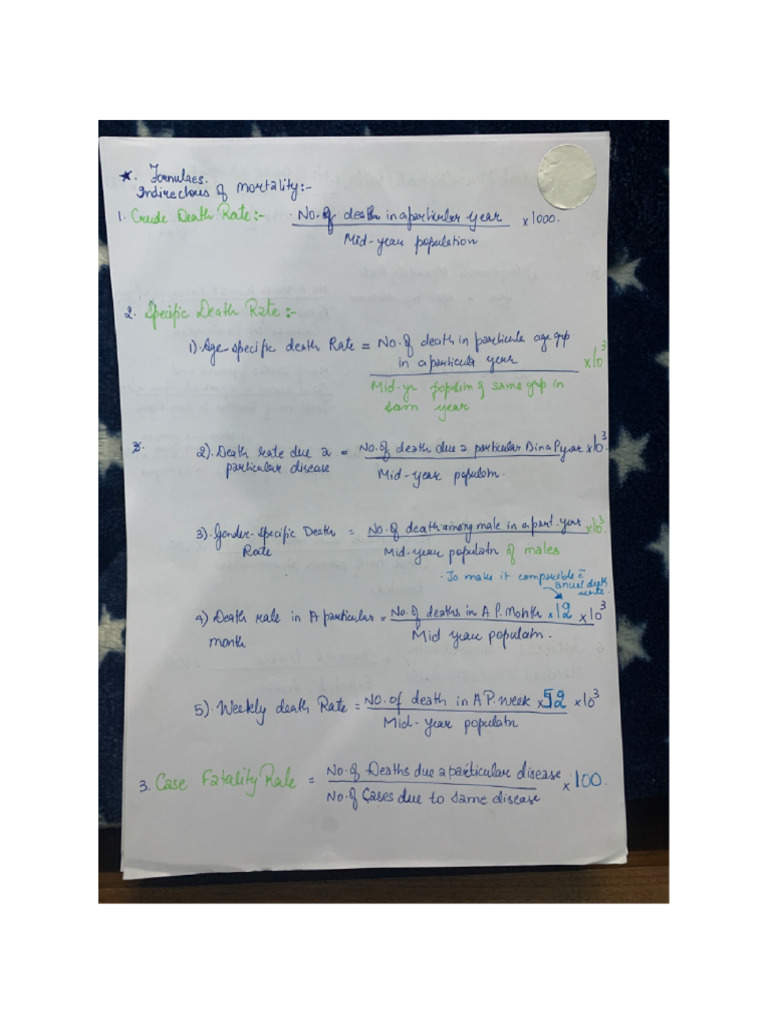 *. Formulaes.
Indirectors of mortality:-
1. Crude Death Rate:- No. of death in a particular year × 1000.
Mid-year population
2. Specific Death Rate:-
1). Age specific death Rate = No. of death in particular age grp
in a particular year × 10³
Mid-yr populm of same grp in
sam year
3. 2). Death rate due a = No. of death due a particular D in a P year × 10³
particular disease Mid-year populatn.
3). Gender-specific Death = No. of death among male in a part. year × 10³
Rate Mid-year populatn of males
. To make it comparible c̄
anual death
rate.
4) Death rate in A particular = No. of deaths in A P. Month × 12 × 10³
month Mid year populatn.
5). Weekly death Rate = No. of death in A P. week × 52 × 10³
Mid-year populatn
3. Case Fatality Rate = No. of Deaths due a particular disease × 100.
No. of Cases due to same disease